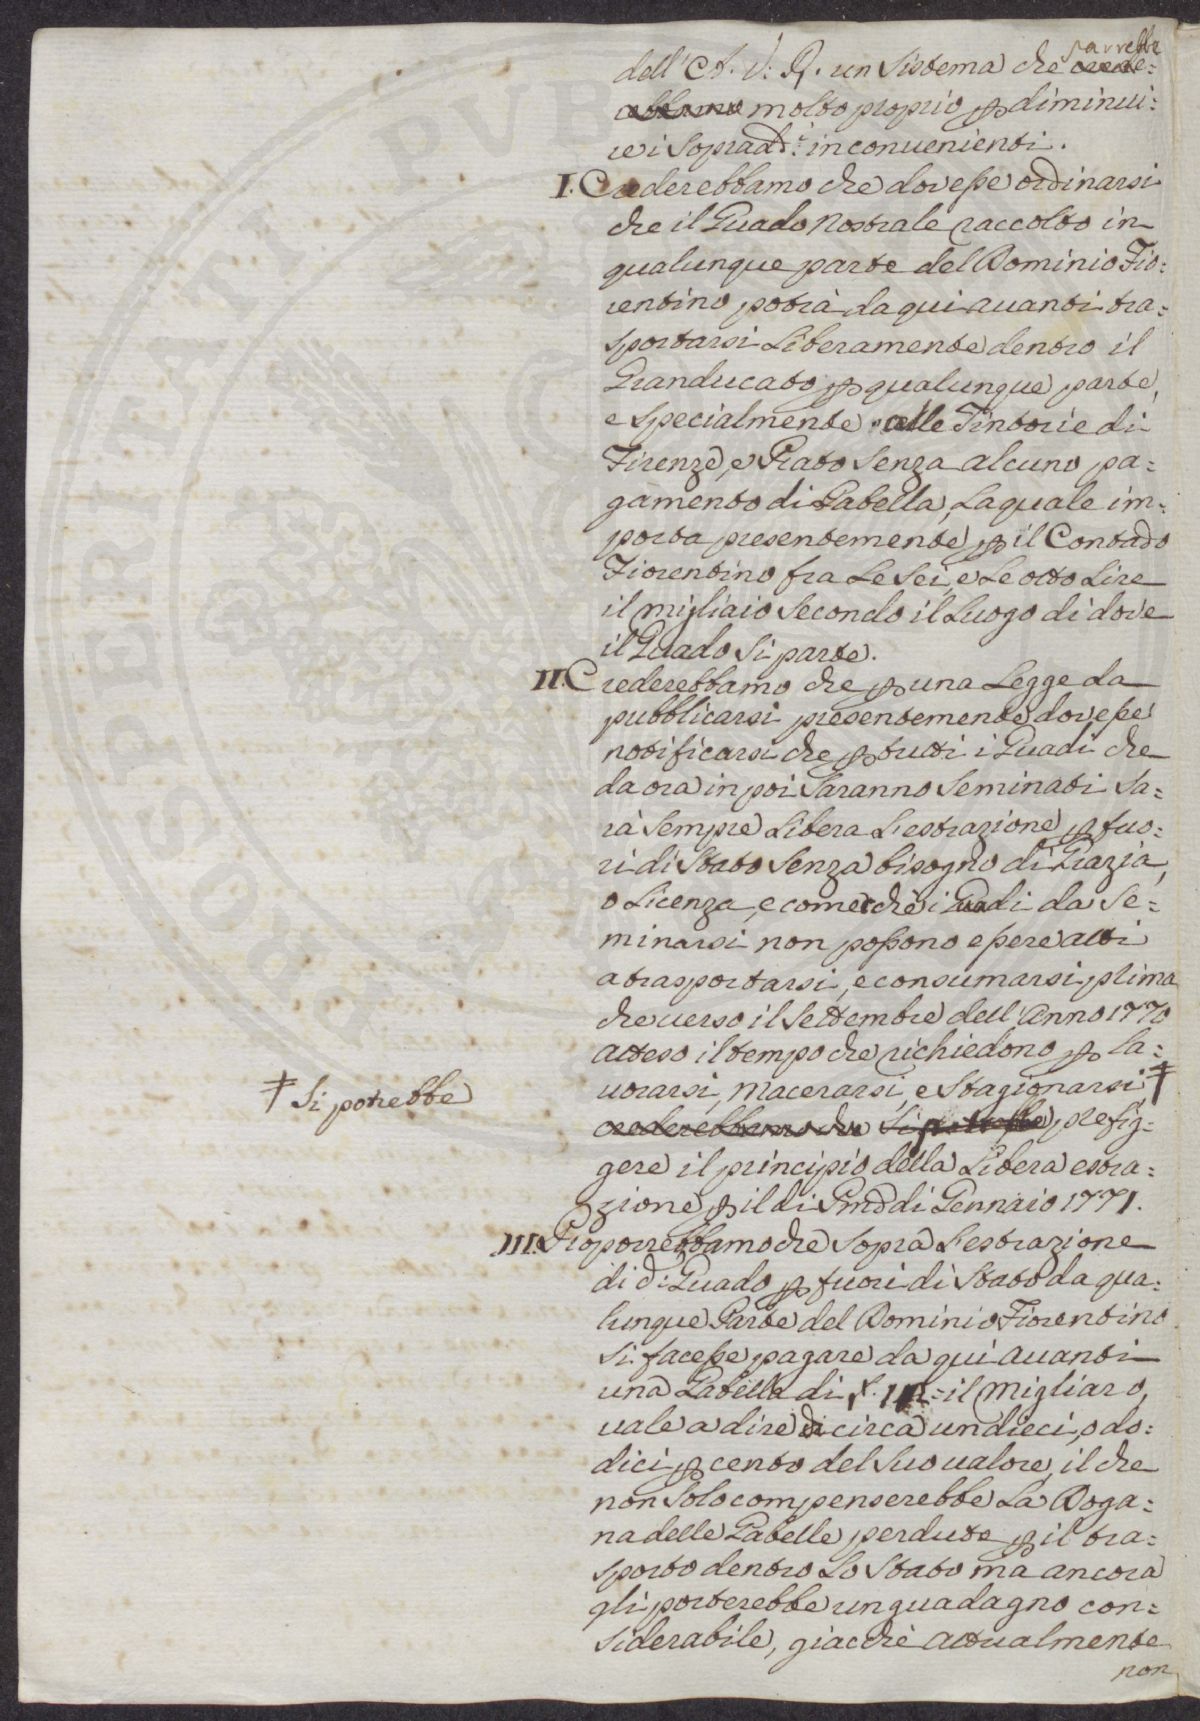 dell'A. V. R. un Sistema che parrebbe
molto proprio p diminui=
re i Sopradd.i inconvenienti.
I. Crederebbamo che dovesse ordinarsi
che il Guado Nostrale raccolto in
qualunque parte del Dominio Fio=
rentino potrà da qui avanti tra=
sportarsi Liberamente dentro il
Granducato p qualunque parte,
e Specialmente alle Tintorie di
Firenze, e Prato Senza alcuno pa=
gamento di Gabella, La quale im=
porta presentemente p il Contado
Fiorentino fra Le Sei, e Le otto Lire
il migliaio Secondo il Luogo di dove
il Guado Si parte.
II. Crederebbamo che p una Legge da
pubblicarsi presentemente dovesse
notificarsi che p tutti i Guadi che
da ora in poi Saranno Seminati Sa=
rà Sempre Libera L'estrazione p fuo=
ri di Stato Senza bisogno di Grazia,
o Licenza, e come che i Guadi da Se=
minarsi non possono essere atti
a trasportarsi, e consumarsi prima
che verso il Settembre dell'Anno 1770
atteso il tempo che richiedono p La=
vorarsi, Macerarsi, e Stagionarsi, ‡
‡ Si potrebbe
crederebbamo che Si potrebbe prefig=
gere il principio della Libera estra=
zione p il di Pmo di Gennaio 1771.
III. Proporrebbamo che Sopra L'estrazione
di d: Guado p fuori di Stato da qua=
lunque Parte del Dominio Fiorentino
Si facesse pagare da qui avanti
una Gabella di il Migliaro,
vale a dire di circa un dieci, o do=
dici p cento del Suo valore, il che
non Solo compenserebbe La Doga=
na delle Gabelle perdute p il tra=
sporto dentro Lo Stato ma ancora
gli porterebbe un guadagno con=
siderabile, giacchè attualmente
non